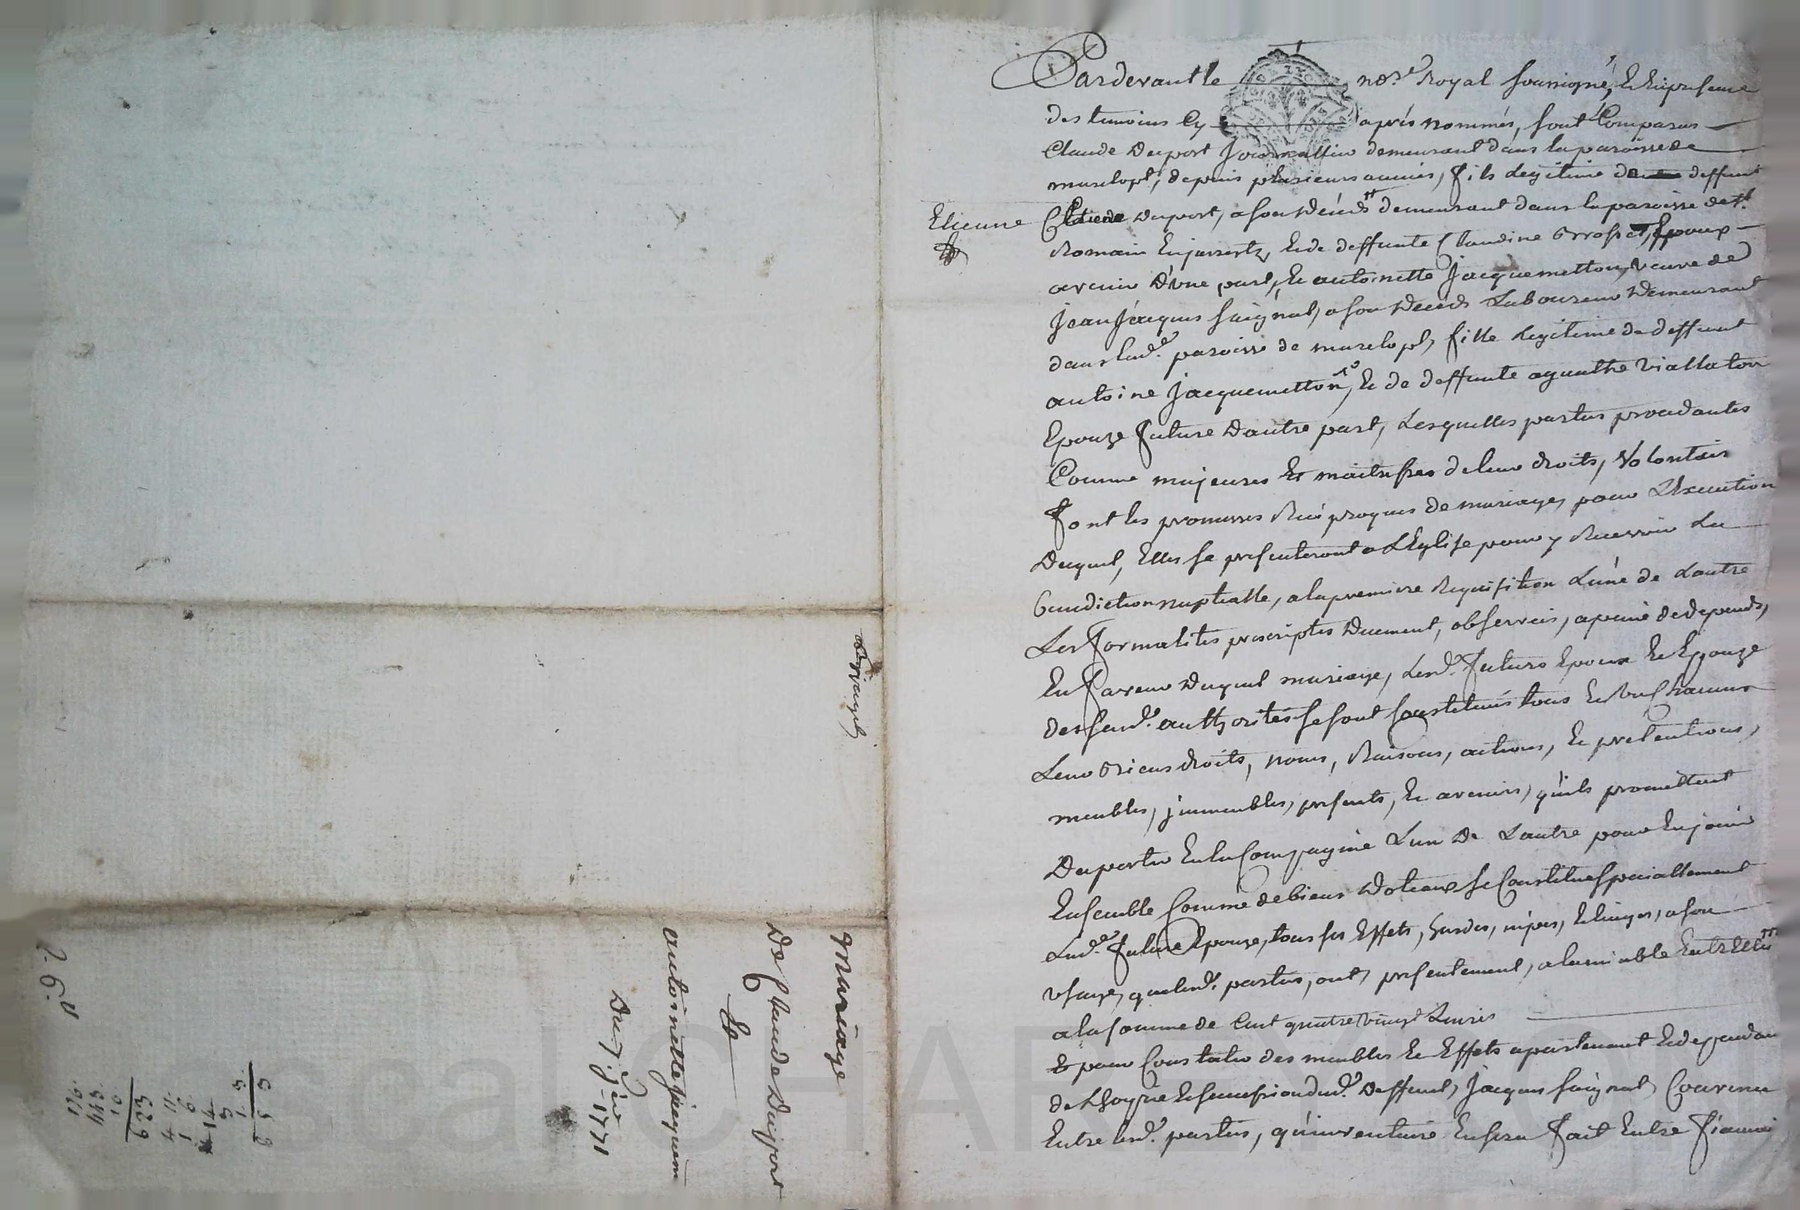 Pardevant le no.re Royal soussigné, Et En presence
des temoins Cy apres nommés, sont Comparus
Claude Duport Journallier demeurant dans la paroisse de
depuis plusieurs années, fils Legitime de deffunt
Etienne
Duport, a son décéds demeurant dans la paroisse de St.
Romain En jarrests, Et de deffunte Claudine Epoux
avenir D'une part, Et antoinette Jacquemetton, veuve de
Jean Jacques a son décéds Laboureur Demeurant
dans lad.e paroisse de fille Legitime de deffunt
antoine Jacquemetton, Et de deffunte agathe Viallaton
Epouze future Dautre part, Lesquelles parties procedantes
Comme majeures Et maitresses de leur droits, Volontair
font les promesses Reciproques de mariage, pour L'Exécution
Duquel, Elles se presenteront a L'Eglise pour y Recevoir La
Benediction nuptialle, a la premiere Requisition L'une de Lautre
Les formalites prescriptes Duement, observées, a peine de depends,
En faveur Duquel mariage, Lesd. futurs Epoux Et Epouze
desd. authorités se sont Constitués tous Et Uns Chacuns
Leur Biens droits, noms, Raisons, actions, Et pretentions,
meubles, jmmeubles, presents, Et avenirs, qu'ils promettent
De porter En la Compagnie L'un De Lautre pour En jouir
Ensemble Comme de biens Dotaux se Constitue speciallement
Lad.e future Epouze, tous ses Effets, hardes, nipes, Et linges, a son
Usage, que lesd. parties, ont, presentement, a l'amiable Entre Elles
a la somme de Cent quatre vingt Livres
Et pour Constater des meubles Et Effets apartenant Et dependan
de L'hoyrie Et succession dud. Deffunt, Jacques Convenu
Entre lesd. parties, qu'inventaire En sera fait Entre
Mariage
De Claude Duport
Et
antoinette jacquem
Du 7. j.er 1771
176.
443.
10
623